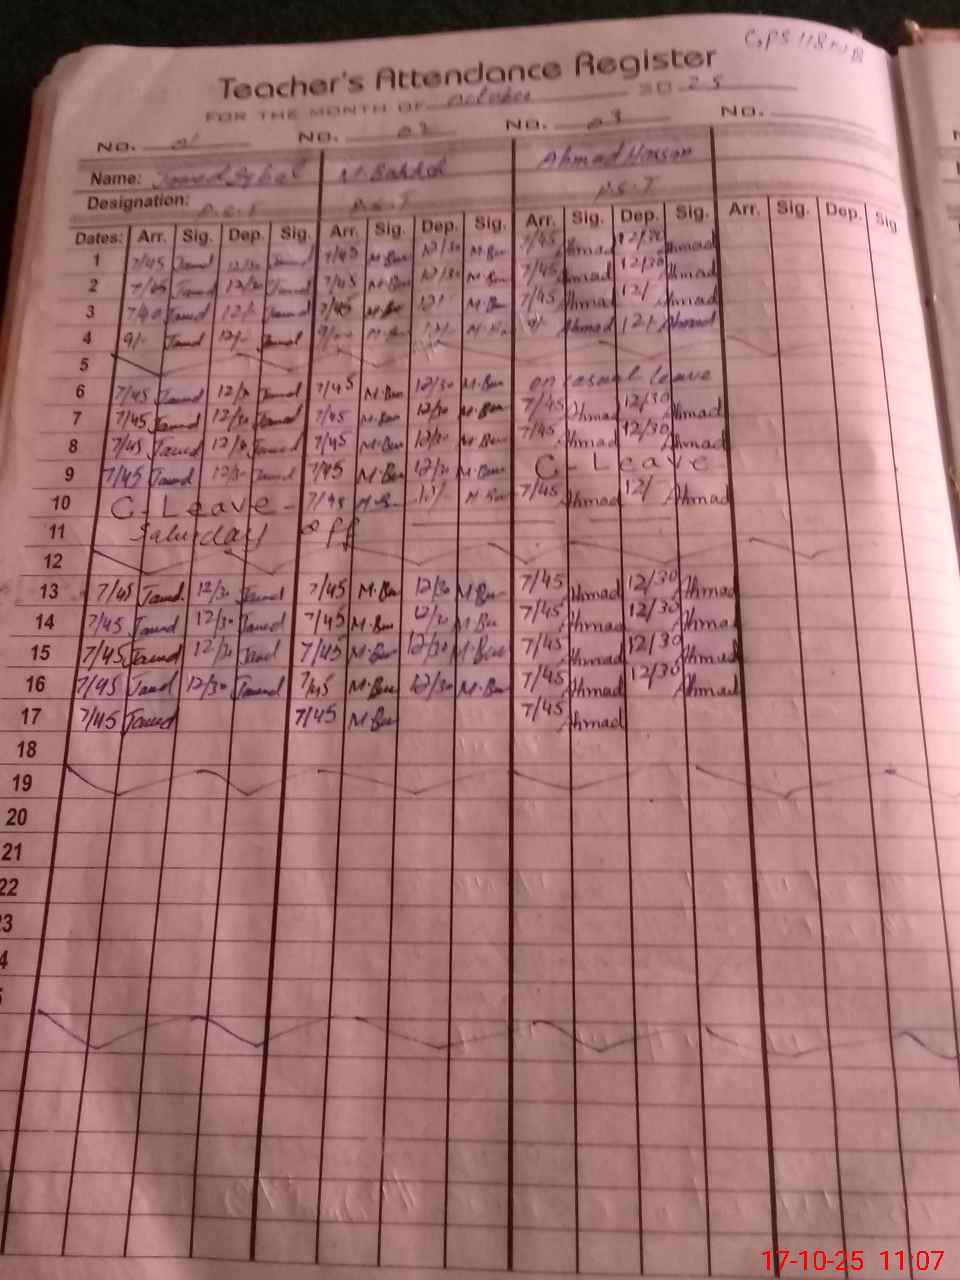 GPS 118 NB
Teacher's Attendance Register
FOR THE MONTH OF October 20 25
No. 01 No. 02 No. 03 No.
Name: Javed Iqbal M. Ahmad Hassan
Designation: P.S.T P.S.T P.S.T
Dates: Arr. Sig. Dep. Sig. Arr. Sig. Dep. Sig. Arr. Sig. Dep. Sig. Arr. Sig. Dep. Sig
1 7/45 Javed 12/30 Javed 7/45 12/30 7/45 Ahmad 12/30 Ahmad
2 7/45 Javed 12/30 Javed 7/45 12/30 7/45 Ahmad 12/30 Ahmad
3 7/40 Javed 12/- Javed 7/45 12/- 7/45 Ahmad 12/- Ahmad
4 9/- Javed 12/- Javed 12/- 9/- Ahmad 12/- Ahmad
5
6 7/45 Javed 12/30 Javed 7/45 12/30 on casual leave
7 7/45 Javed 12/30 Javed 7/45 12/30 7/45 Ahmad 12/30 Ahmad
8 7/45 Javed 12/30 Javed 7/45 12/30 7/45 Ahmad 12/30 Ahmad
9 7/45 Javed 12/30 Javed 7/45 12/30 C-Leave
10 C-Leave- 7/45 12/- 7/45 Ahmad 12/- Ahmad
11 Saturday off
12
13 7/45 Javed 12/30 Javed 7/45 12/30 7/45 Ahmad 12/30 Ahmad
14 7/45 Javed 12/30 Javed 7/45 12/30 7/45 Ahmad 12/30 Ahmad
15 7/45 Javed 12/30 Javed 7/45 12/30 7/45 Ahmad 12/30 Ahmad
16 7/45 Javed 12/30 Javed 7/45 12/30 7/45 Ahmad 12/30 Ahmad
17 7/45 Javed 7/45 7/45 Ahmad
18
19
20
21
22
23
17-10-25 11:07